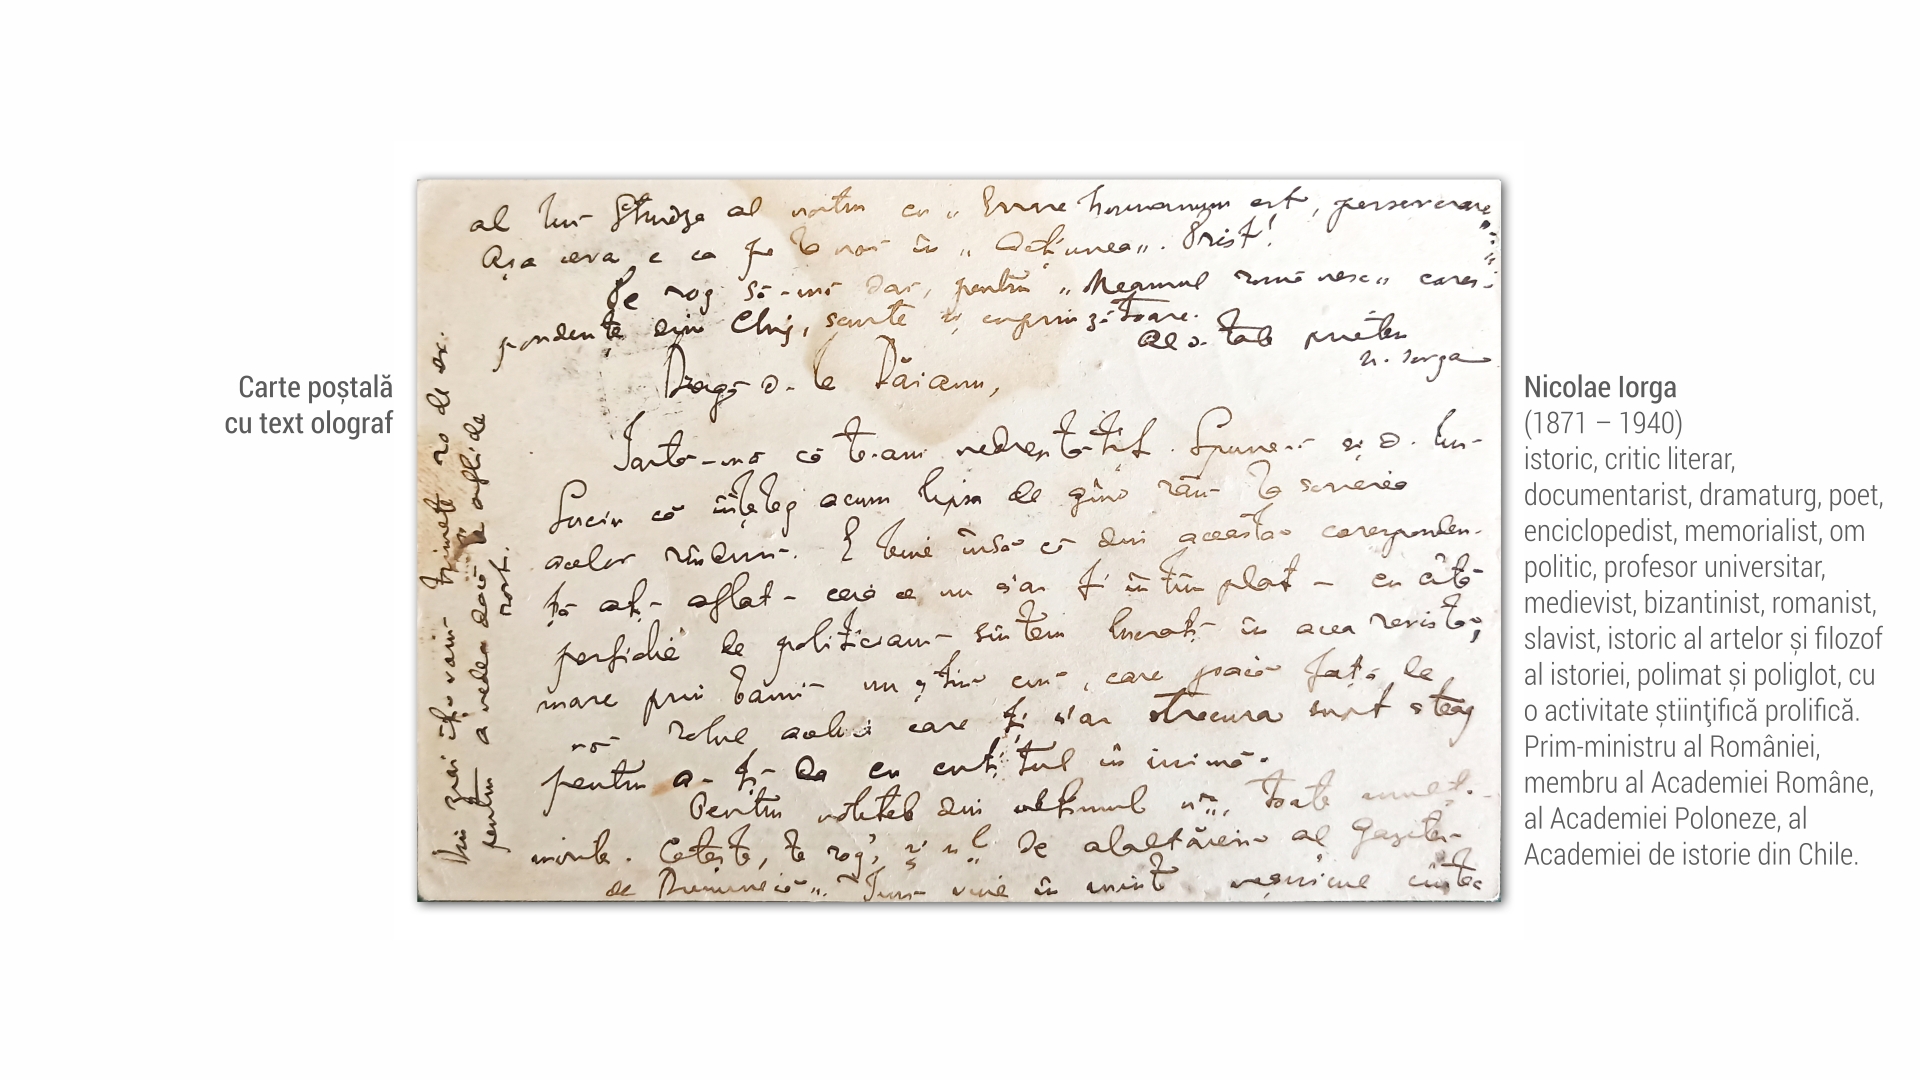 Carte poștală
cu text olograf
al lui Sturdza al nostru cu „Errare humanum est, perseverare
Așa ceva e ca pe la noi în „Acțiunea”. Trist!
Te rog să-mi dai, pentru „Neamul românesc” cores-
pondențe din Cluj, scurte și cuprinzătoare.
Al d-tale prieten
N. Iorga
Dragă d-le Dăianu,
Iartă-mă că te-am nedreptățit. Spune-i și d. lui
Luciu că înțeleg acum lipsa de gînd rău la scrierea
acelor rînduri. E bine însă că din aceasta coresponden-
ță ați aflat – ceia ce nu s'ar fi întîmplat – cu cîtă
perfidie de politiciani sîntem lucrați în acea revistă,
mare prin banii nu știu cui, care joacă față de
noi rolul aceluia care ți s'ar strecura supt steag
pentru a-ți da cu cuțitul în inimă.
Pentru notițele din ultimul nr., toate
Cetește, te rog, și nl de alaltăieri al Gazetei
de Dumineca”. Îmi vine în minte cîntec
trimete 20 de ex.
pentru a vedea dacă
Nicolae Iorga
(1871 – 1940)
istoric, critic literar,
documentarist, dramaturg, poet,
enciclopedist, memorialist, om
politic, profesor universitar,
medievist, bizantinist, romanist,
slavist, istoric al artelor și filozof
al istoriei, polimat și poliglot, cu
o activitate științifică prolifică.
Prim-ministru al României,
membru al Academiei Române,
al Academiei Poloneze, al
Academiei de istorie din Chile.